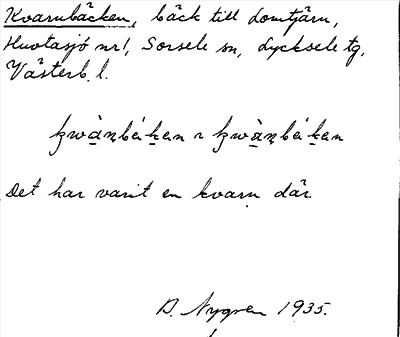 Kvarnbäcken, bäck till Lomtjärn,
Huotasjö nr 1, Sorsele sn, Lycksele tg,
Västerb. l.
kwànbákan ~ kwànbákan
Det har varit en kvarn där.
D. Nygren 1935.